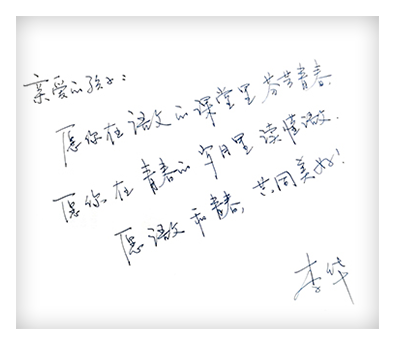 亲爱的孩子：
愿你在语文的课堂里芬芳青春.
愿你在青春的岁月里读懂语文.
愿语文和青春,共同美好!
李华